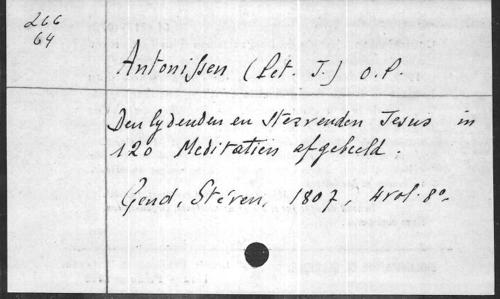 266
64
Antonissen (Pet. J.) O.P.
Den lydenden en stervenden Jesus in
120 Meditatien afgebeeld.
Gend, Stéven, 1807, 4 vol. 8º.